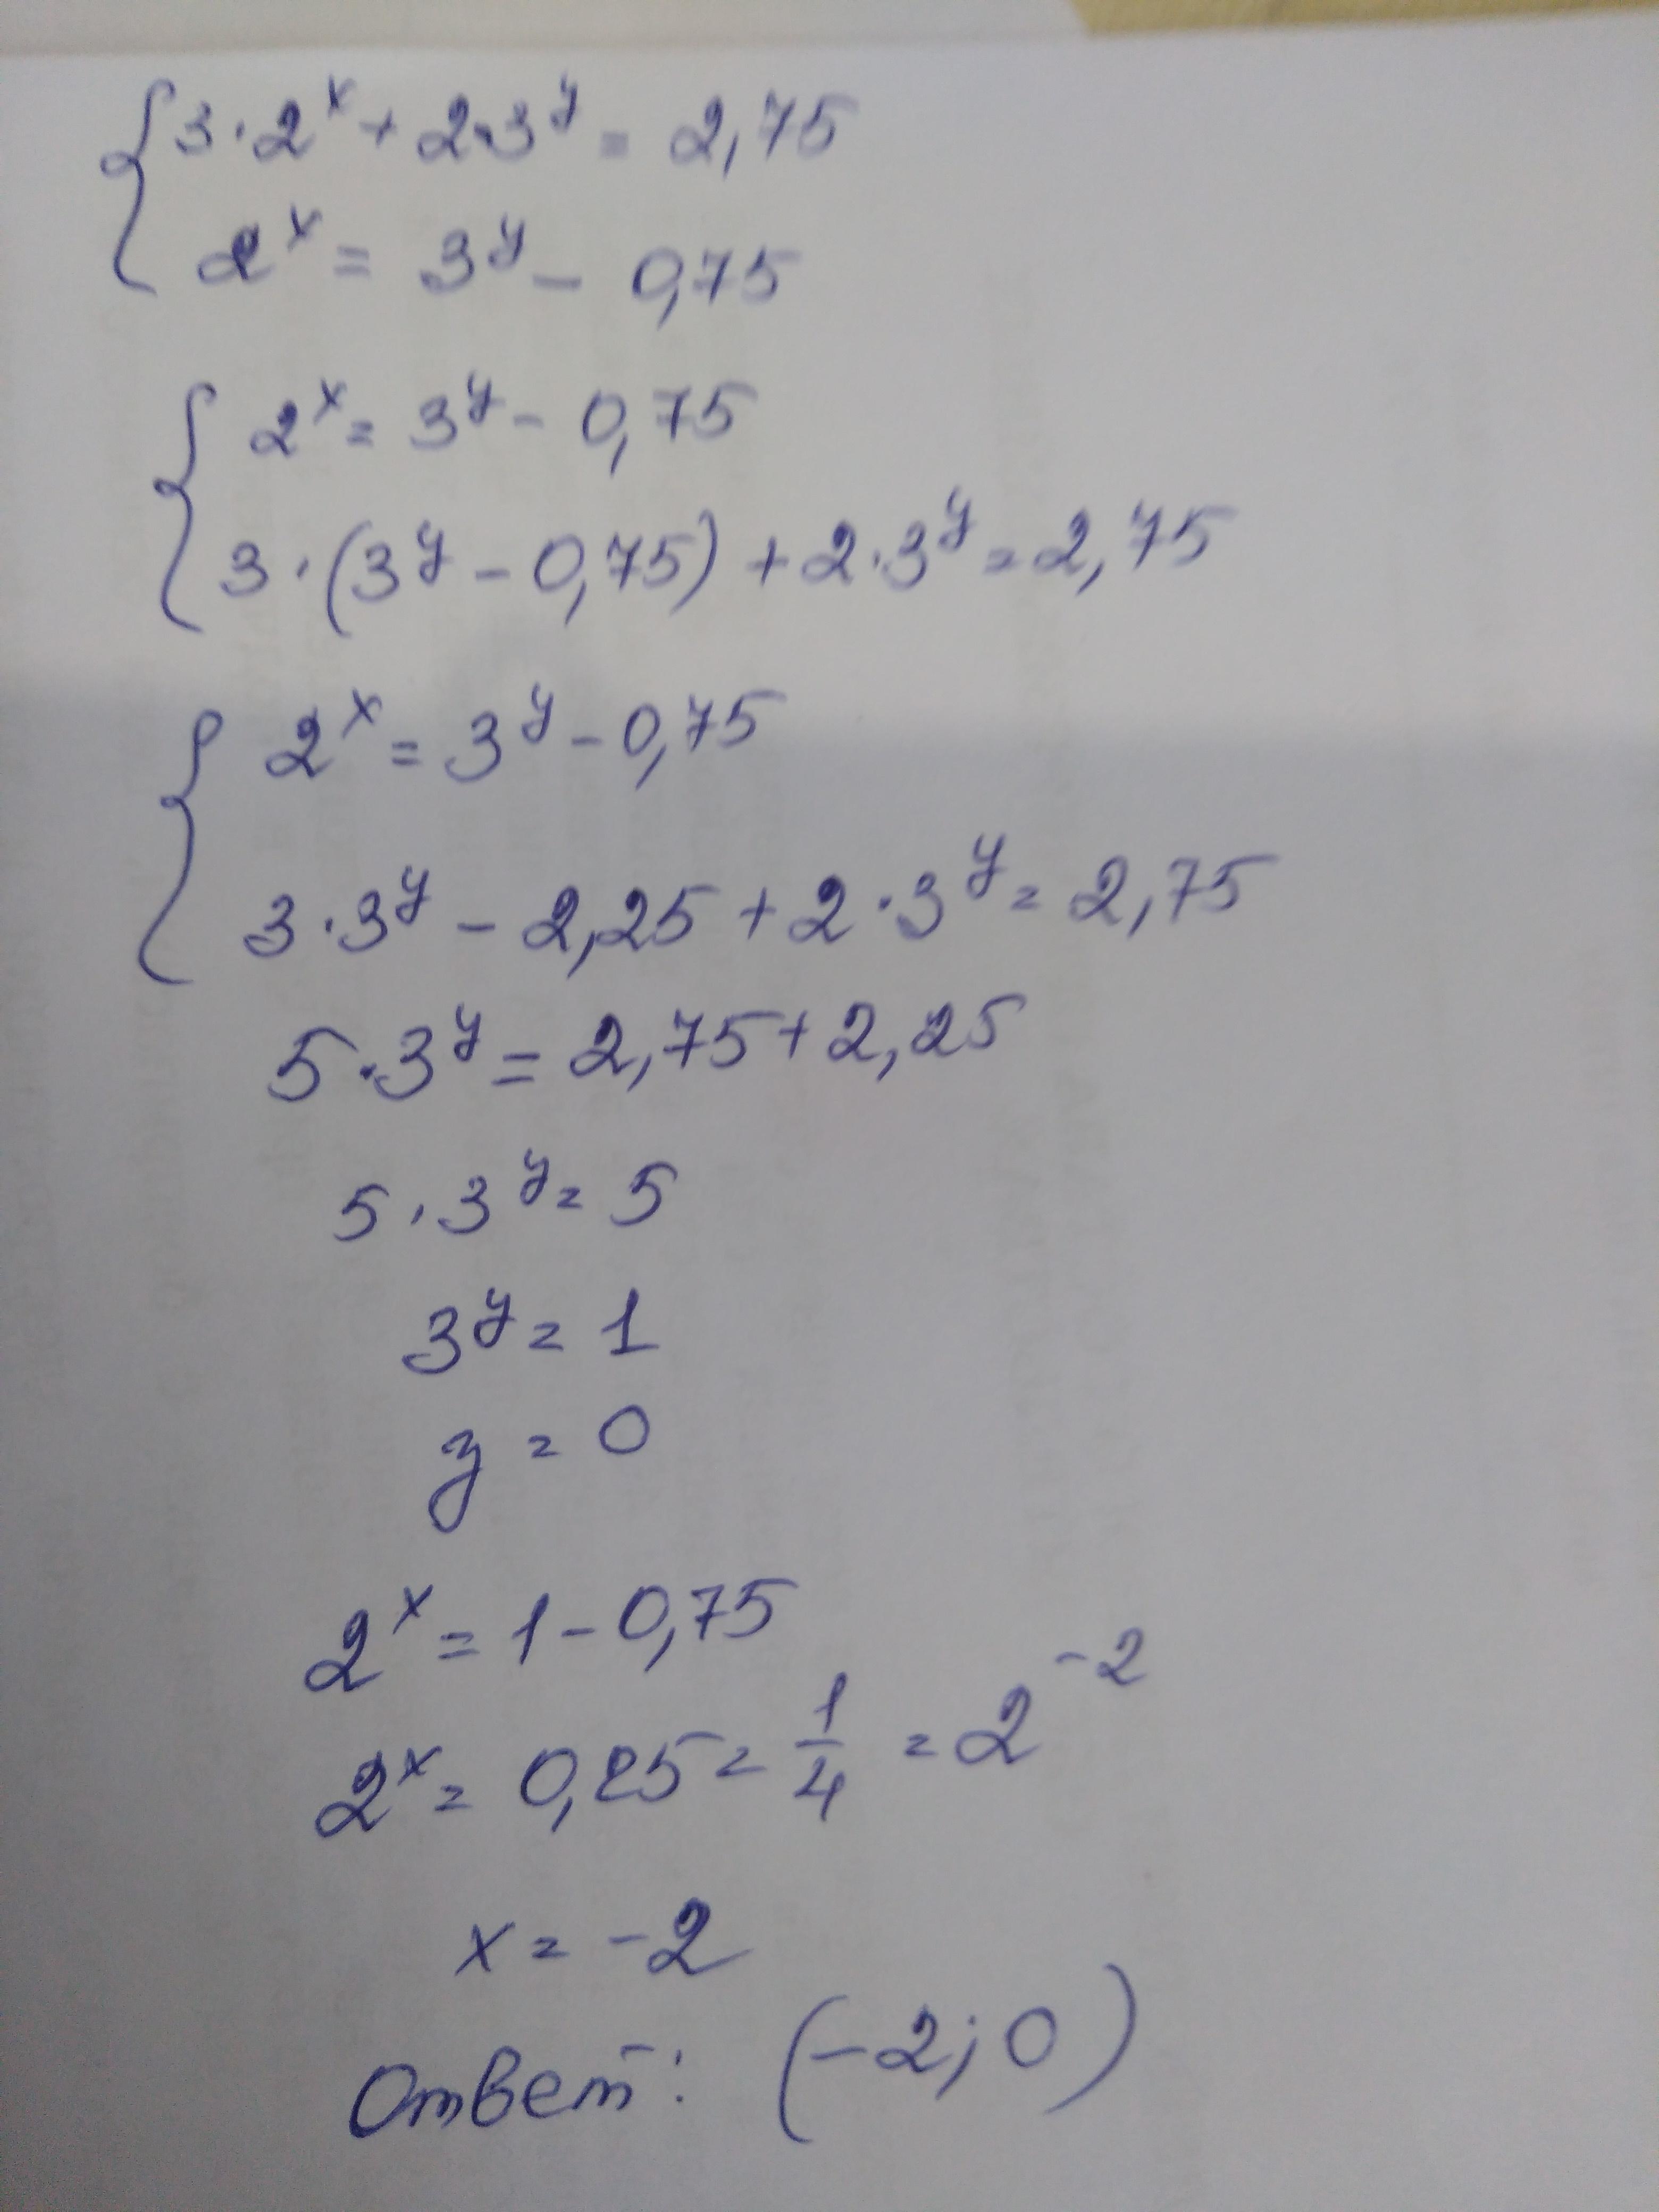 { 3·2^x + 2·3^y = 2,75
2^x = 3^y - 0,75
{ 2^x = 3^y - 0,75
3·(3^y - 0,75) + 2·3^y = 2,75
{ 2^x = 3^y - 0,75
3·3^y - 2,25 + 2·3^y = 2,75
5·3^y = 2,75 + 2,25
5·3^y = 5
3^y = 1
y = 0
2^x = 1 - 0,75
2^x = 0,25 = 1/4 = 2^-2
x = -2
Ответ: (-2; 0)